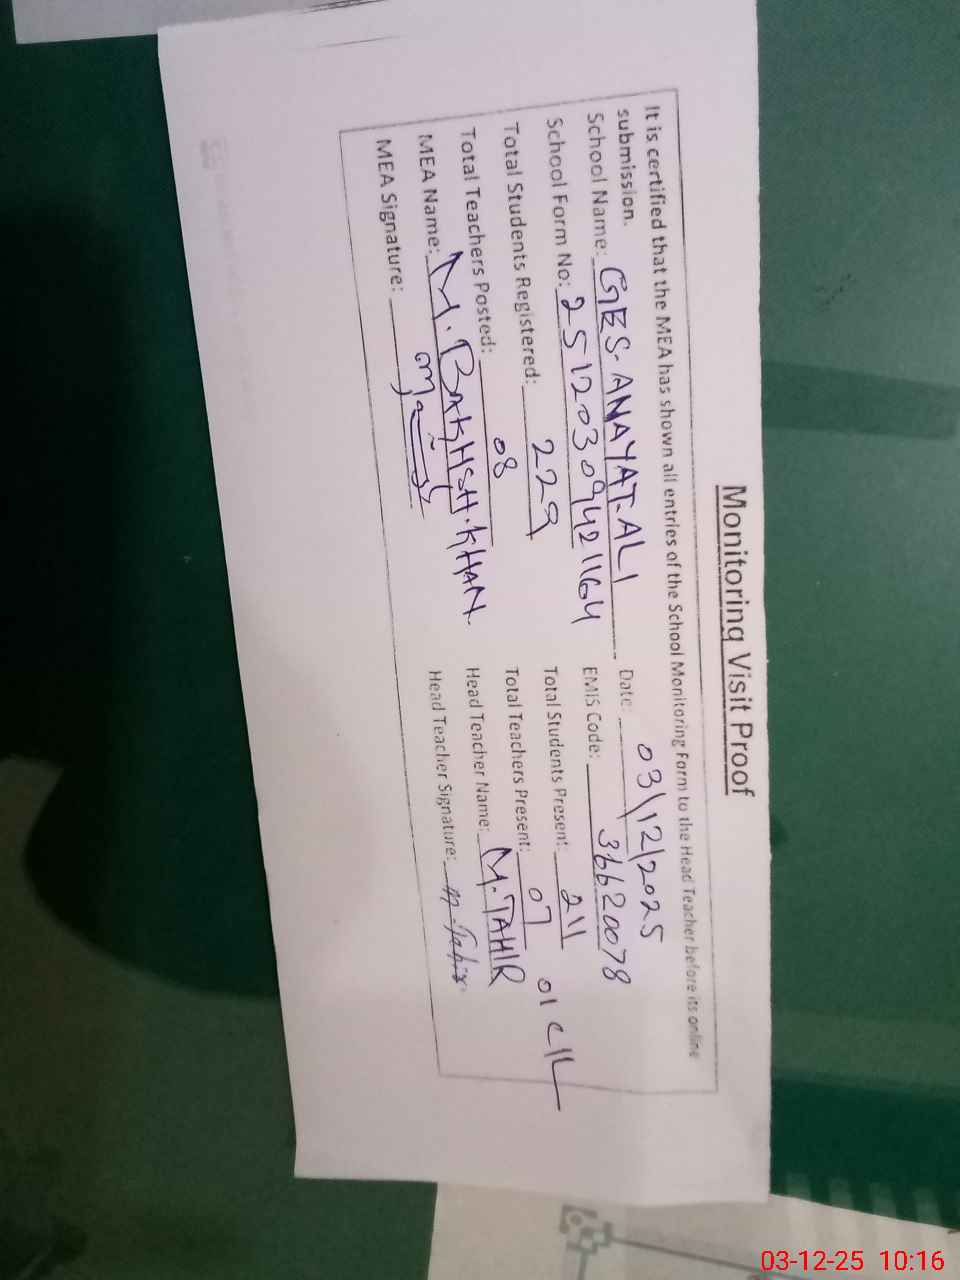 Monitoring Visit Proof
It is certified that the MEA has shown all entries of the School Monitoring Form to the Head Teacher before its online
submission.
School Name: GES. ANAYAT. ALI Date: 03/12/2025
School Form No: 2512030942 1164 EMIS Code: 36620078
Total Students Registered: 229 Total Students Present: 211
Total Teachers Posted: 08 Total Teachers Present: 07 01 C/L
MEA Name: M. BAKHSH. KHAN. Head Teacher Name: M. TAHIR
MEA Signature: Head Teacher Signature: M. Tahir
03-12-25 10:16